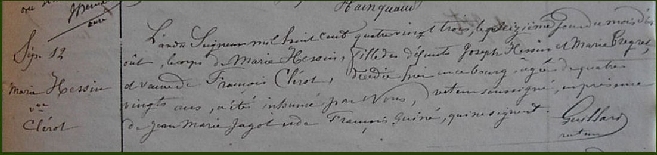 curé
Sép. 12
Marie Hessin
vve
Clérot
L'an du Seigneur mil huit cent quatre vingt trois, le seizième jour du mois d'a
oût, le corps de Marie Hessin, fille des défunts Joseph Hessin et Marie
et veuve de François Clérot, décédée en ce bourg, âgée de quatre
vingts ans, a été inhumé par Nous, soussigné, en présence
de Jean Marie Jagot et de François Guiné, qui ne signent
Guillard